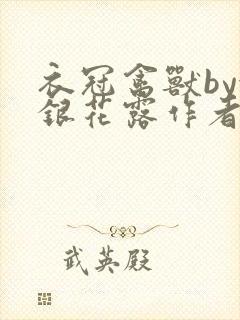 衣冠禽獸by
銀花露作者
武英殿